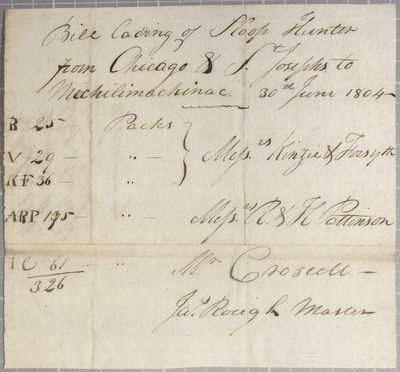 Bill Lading of Sloop Hunter
from Chicago & St. Josephs to
Michilimackinac 30th June 1804
B 25 — Packs
V 29 — " — Mess.rs Kinzie & Forsyth
K F 36 — " —
ARP 175 — " — Mess.rs R. & H. Pattinson
I C 61 — " Mr
326
Jas. Rough Master